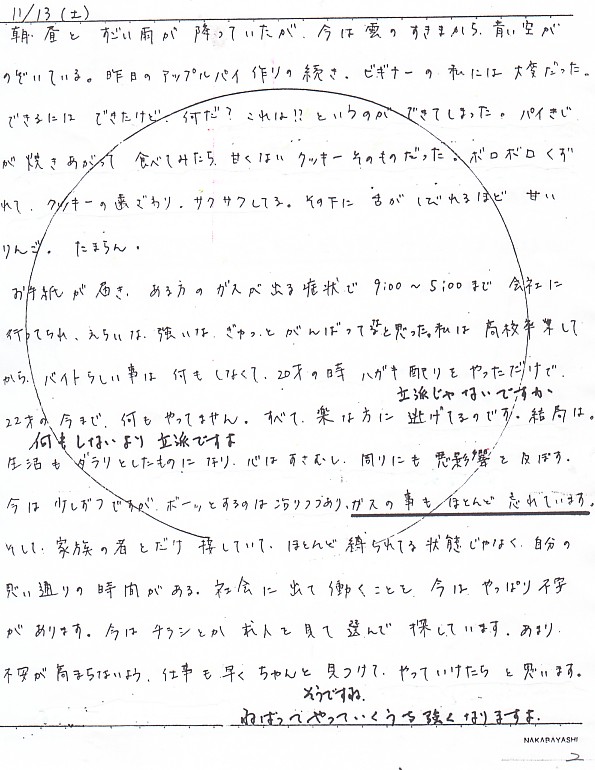 11/13(土)
朝、昼と すごい雨が 降っていたが、今は雲のすきまから、青い空が
のぞいている。昨日のアップルパイ作りの続き、ビギナーの私には大変だった。
できるには できたけど、何だ?これは!!というのができてしまった。パイきじ
が焼きあがって 食べてみたら、甘くない クッキーそのものだった。ボロボロくず
れて、クッキーの サクサクしてる。その下に 舌がしびれるほど 甘い
りんご。たまらん。
お手紙が届き、ある方のガスが出る症状で 9:00〜5:00まで 会社に
行ってられ、えらいな、強いな、ぎゅっとがんばって と思った。私は 高校卒業して
から、バイトらしい事は 何もしなくて、20才の時 ハガキ配りをやっただけで、
立派じゃないですか
22才の今まで、何もやってません。すべて、楽な方に 逃げてるのです。結局は。
何もしないより 立派ですよ
生活もダラリとしたものになり、心はすさむし、周りにも 悪影響を及ぼす。
今は 少しずつですが、ボーッとするのは っつあり、ガスの事も ほとんど 忘れています。
そして、家族の者とだけ 接していて、ほとんど 縛られてる状態じゃなく、自分の
思い通りの時間がある。社会に出て働くことを、今は やっぱり不安
があります。今は チラシとか 求人を見て 選んで 探しています。あまり、
不安が高まらないよう、仕事も早く ちゃんと 見つけて、やっていけたら と思います。
そうですね。
ねばってやっていくうち強くなりますよ。
NAKABAYASHI
2